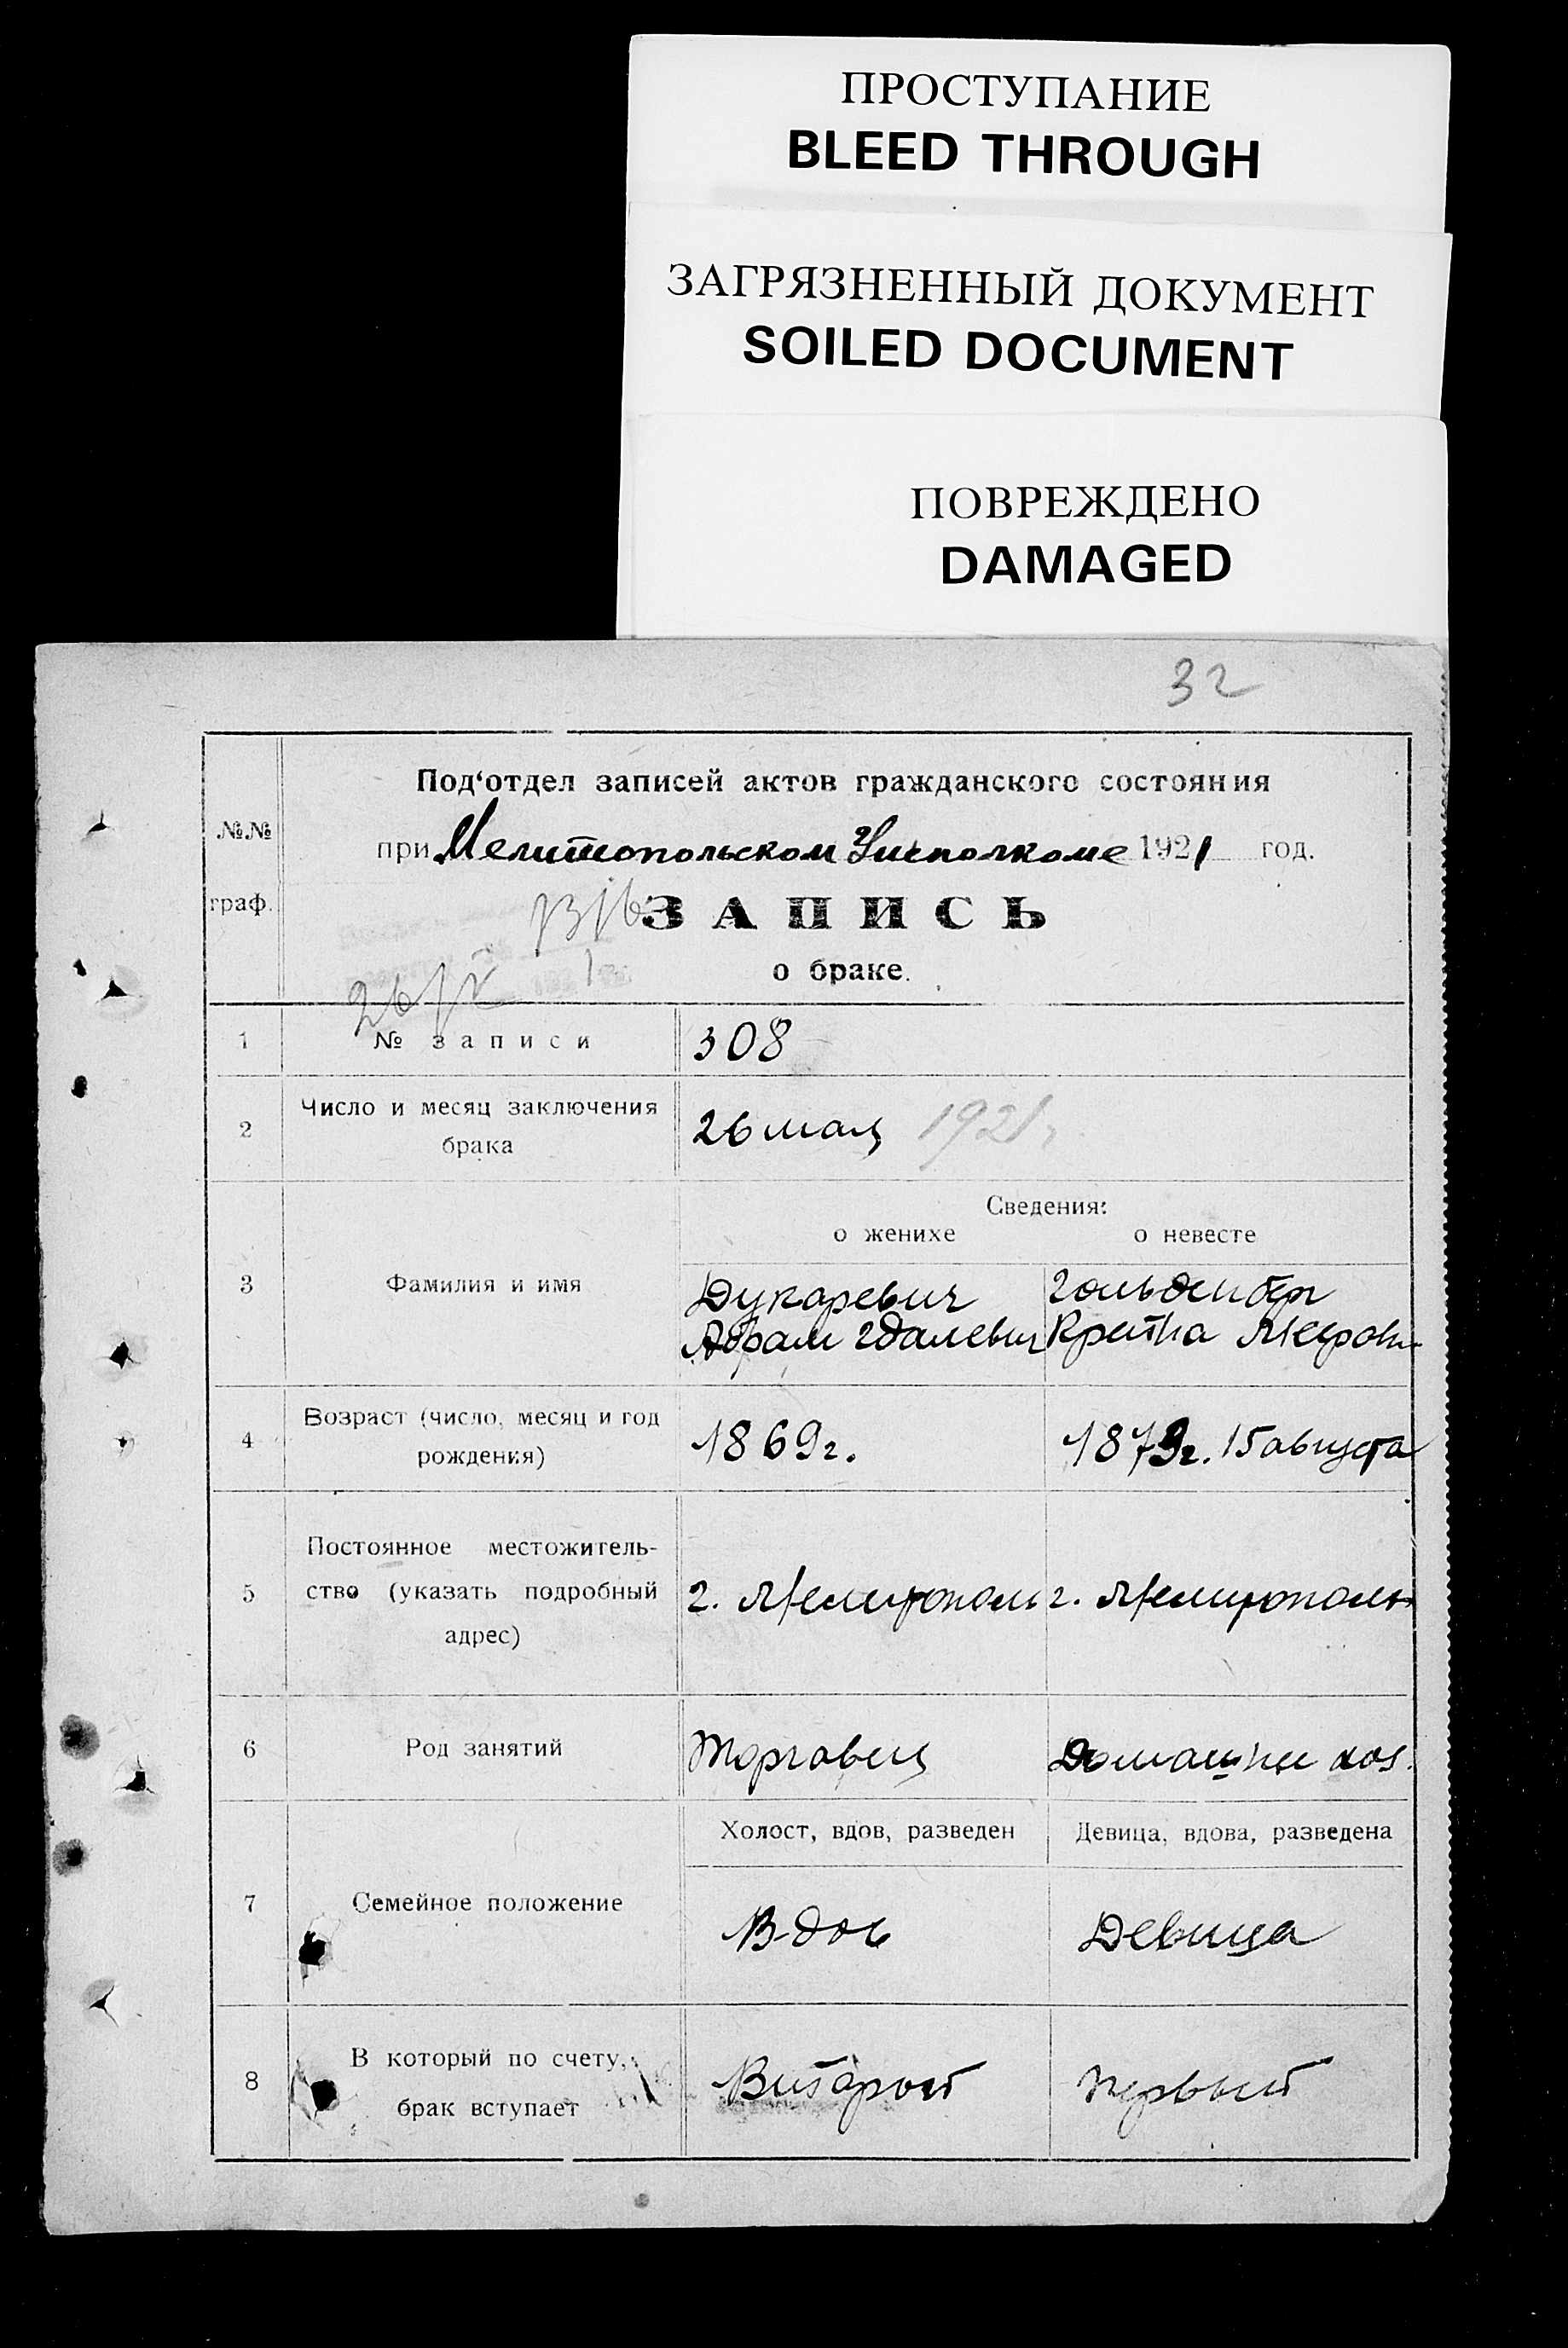 ПРОСТУПАНИЕ
BLEED THROUGH
ЗАГРЯЗНЕННЫЙ ДОКУМЕНТ
SOILED DOCUMENT
ПОВРЕЖДЕНО
DAMAGED
32
№№
граф.
Под‘отдел записей актов гражданского состояния
при Мелитопольском Уисполкоме 1921 год.
ЗАПИСЬ
о браке.
1
№ записи
308
2
Число и месяц заключения
брака
26 мая 1921 г
Сведения:
о женихе о невесте
3
Фамилия и имя
Дукаревич
Абрам Гдалевич
Гольденберг
Крейна
4
Возраст (число, месяц и год
рождения)
1869 г.
1879 г. 15 августа
5
Постоянное местожитель-
ство (указать подробный
адрес)
г. Мелитополь
г. Мелитополь
6
Род занятий
Торговец
Домашнее хоз.
7
Семейное положение
Холост, вдов, разведен
Девица, вдова, разведена
Вдов
Девица
8
В который по счету,
брак вступает
Второй
первый